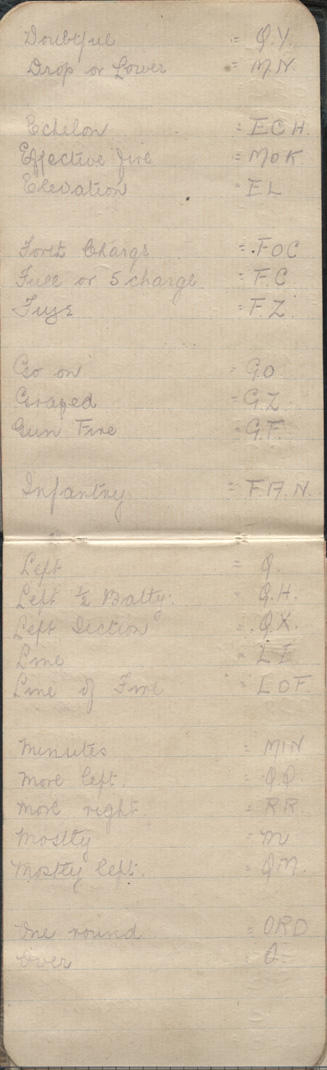 Doubtful = Q.Y.
Drop or Lower = M.N.
Echelon = ECH.
Effective fire = MOK
Elevation = EL
Charge = FOC
Full or 5 charge = F.C
Fuze = F.Z.
Go on = G.O
Grazed = G.Z
Gun Fire = G.F.
Infantry = F.A.N.
Left = Q.
Left ½ Batty. = Q.H.
Left Section = Q.X.
Line = LI
Line of Fire = LOF.
Minutes = MIN
More left. = Q.Q.
More right. = R.R.
Mostly = M
Mostly left. = QM.
One round = ORD
Over = O